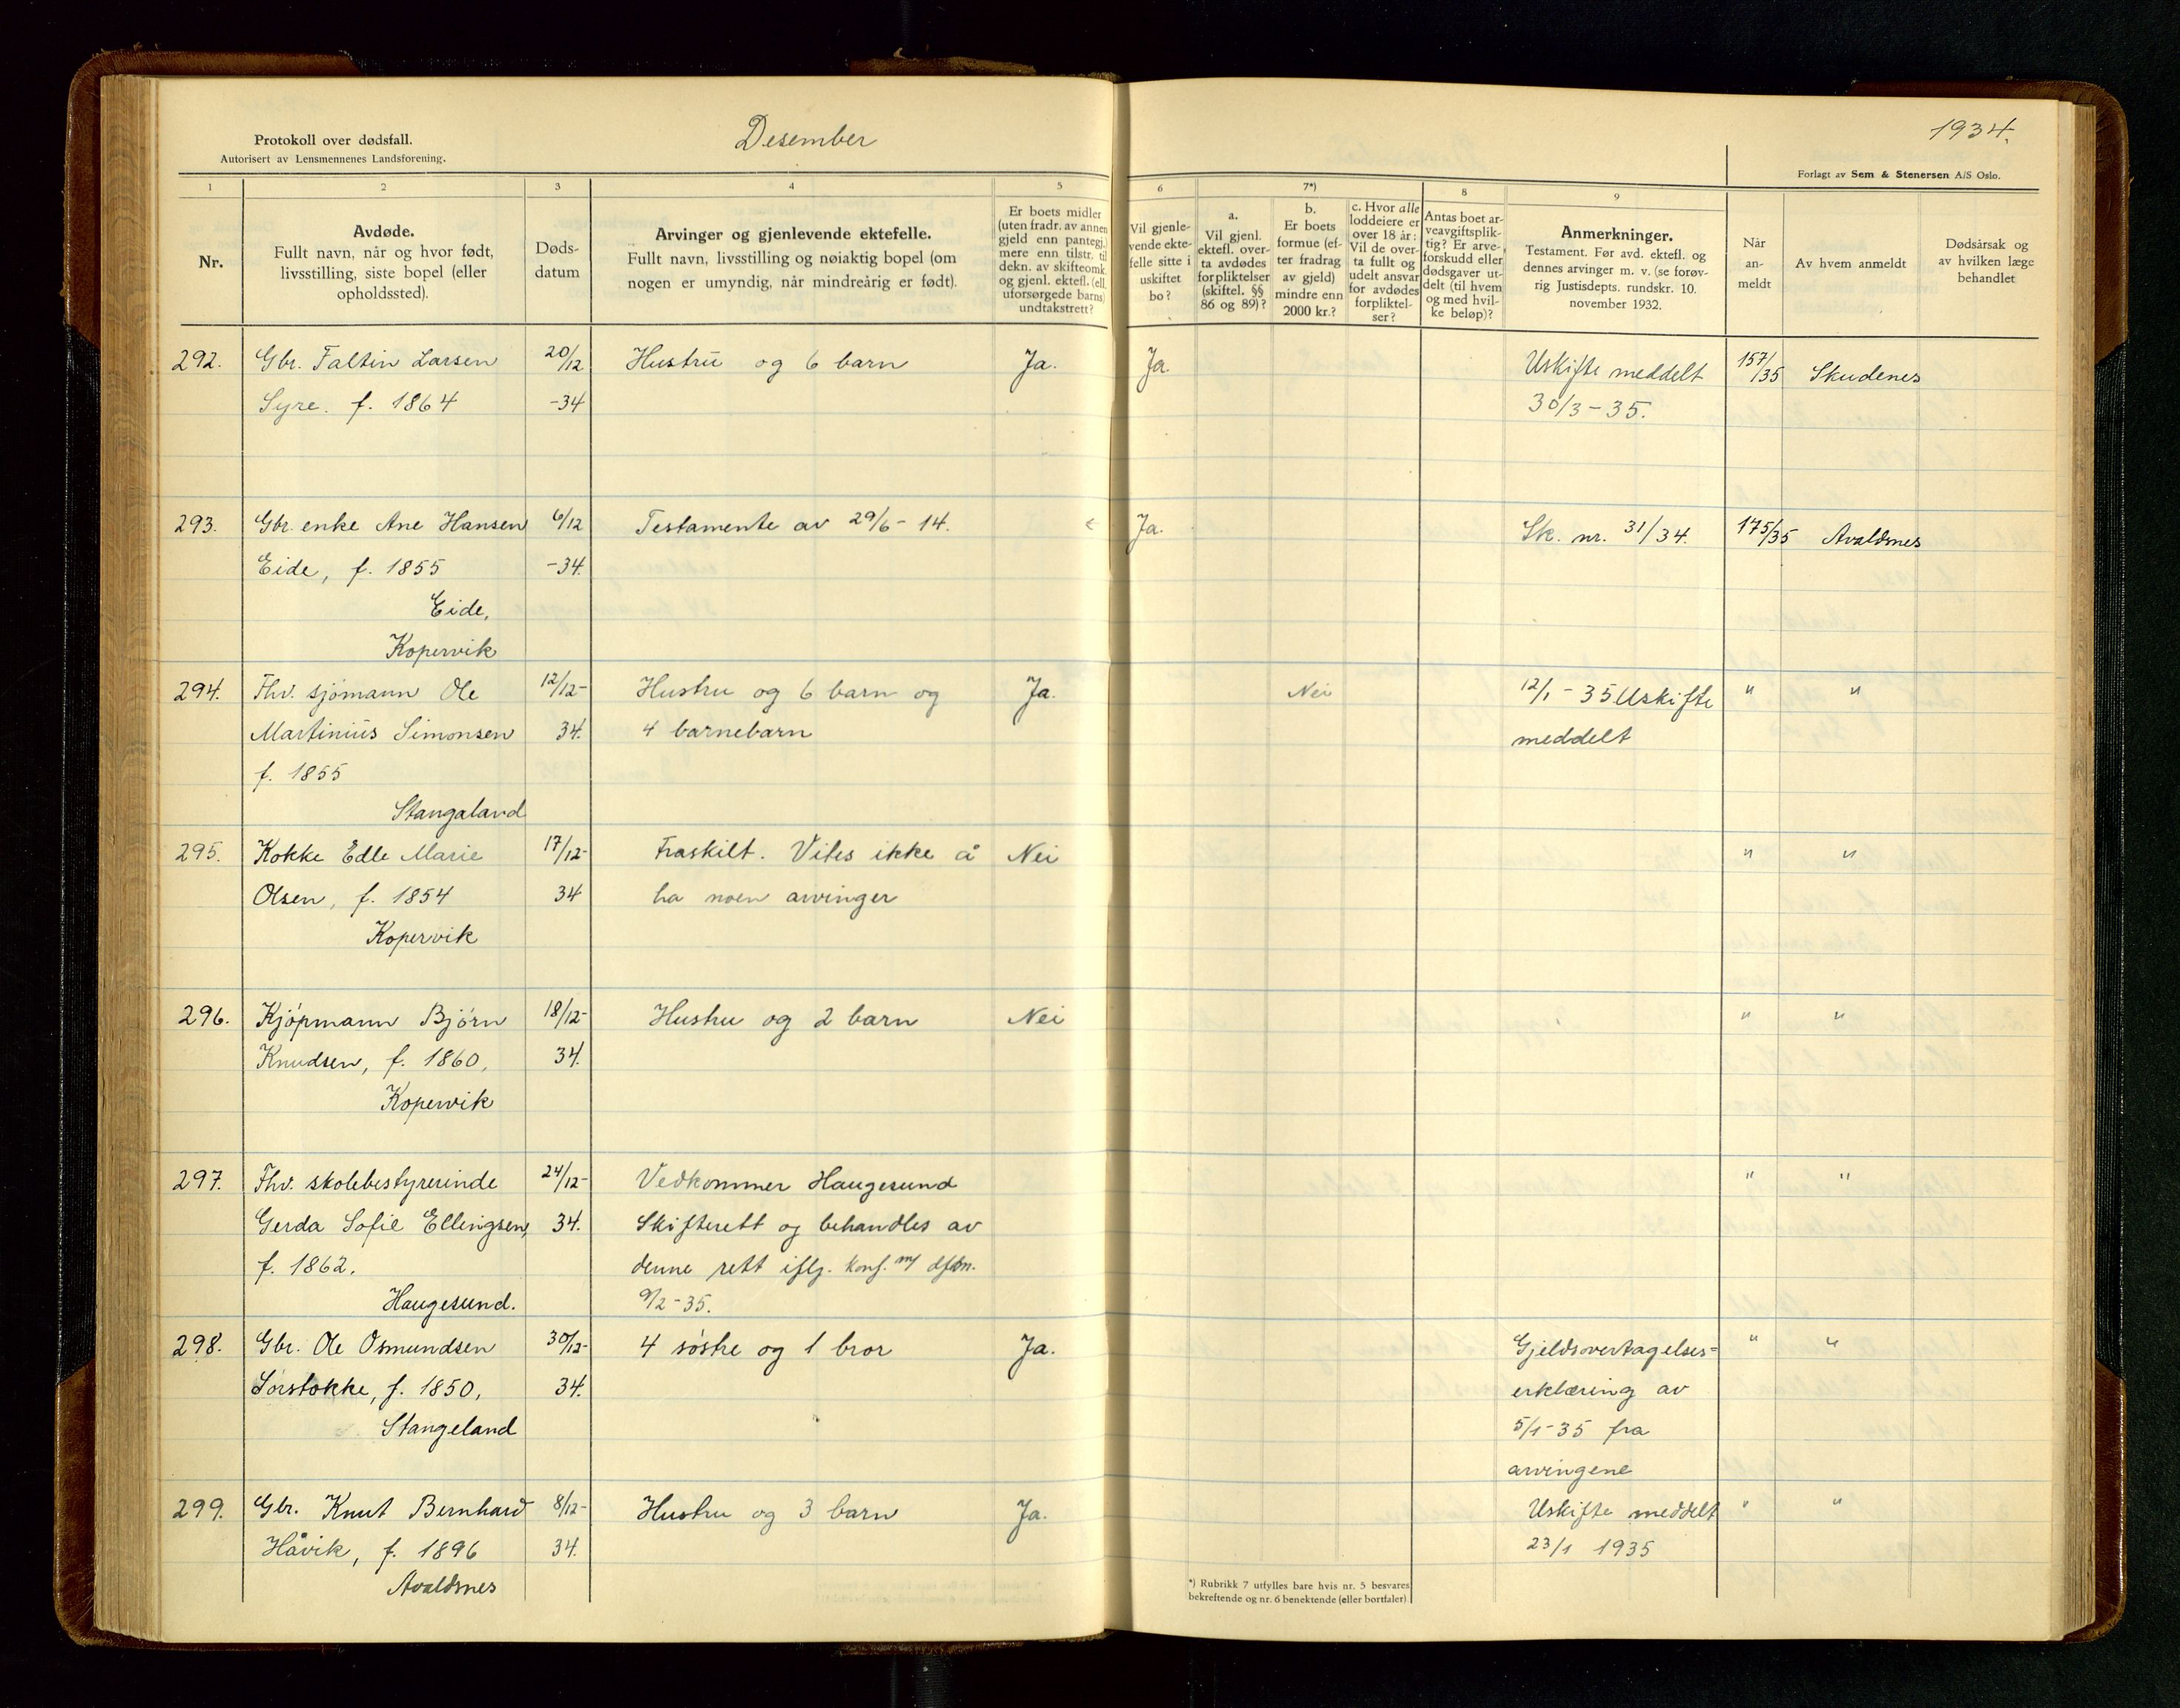 Protokoll over dødsfall.
Autorisert av Lensmennenes Landsforening.
Desember
1934.
Forlagt av Sem & Stenersen A/S Oslo.
1 2 3 4 5 6 7*) 8 9
Nr.
Avdøde.
Fullt navn, når og hvor født,
livsstilling, siste bopel (eller
opholdssted).
Døds-
datum
Arvinger og gjenlevende ektefelle.
Fullt navn, livsstilling og nøiaktig bopel (om
nogen er umyndig, når mindreårig er født).
Er boets midler
(uten fradr. av annen
gjeld enn pantegj.)
mere enn tilstr. til
dekn. av skifteomk.
og gjenl. ektefl. (ell.
uforsørgede barns)
undtakstrett?
Vil gjenle-
vende ekte-
felle sitte i
uskiftet
bo?
a.
Vil gjenl.
ektefl. over-
ta avdødes
forpliktelser
(skiftel. §§
86 og 89)?
b.
Er boets
formue (ef-
ter fradrag
av gjeld)
mindre enn
2000 kr.?
c. Hvor alle
loddeiere er
over 18 år:
Vil de over-
ta fullt og
udelt ansvar
for avdødes
forpliktel-
ser?
Antas boet ar-
veavgiftsplik-
tig? Er arve-
forskudd eller
dødsgaver ut-
delt (til hvem
og med hvil-
ke beløp)?
Anmerkninger.
Testament. Før avd. ektefl. og
dennes arvinger m. v. (se forøv-
rig Justisdepts. rundskr. 10.
november 1932.
Når
an-
meldt
Av hvem anmeldt
Dødsårsak og
av hvilken læge
behandlet
292. Gbr. Faltin Larsen 20/12 Hustru og 6 barn Ja. Ja. Uskifte meddelt 157/35 Skudenes
Syre. f. 1864 -34 30/3-35.
293. Gbr. enke Ane Hansen 6/12 Testamente av 29/6-14. Ja. Sk. nr. 31/34. 175/35 Avaldsnes
Eide, f. 1855 -34.
Eide,
Kopervik
294. Fhv. sjømann Ole 12/12- Hustru og 6 barn og Ja. Nei 12/1-35 Uskifte " "
Martinius Simonsen 34. 4 barnebarn meddelt
f. 1855
Stangaland
295. Kokke Edle Marie 17/12- Fraskilt. Vites ikke å Nei " "
Olsen, f. 1854 34 ha noen arvinger
Kopervik
296. Kjøpmann Bjørn 18/12- Hustru og 2 barn Nei " "
Knudsen, f. 1860, 34.
Kopervik
297. Fhv. skolebestyrerinde 24/12- Vedkommer Haugesund " "
Gerda Sofie Ellingsen, 34. Skifterett og behandles av
f. 1862. denne rett iflg. konf. m/
Haugesund. 9/2-35.
298. Gbr. Ole Osmundsen 30/12- 4 søstre og 1 bror Ja. Gjeldsovertagelses= " "
Sørstokke, f. 1850, 34. erklæring av
Stangeland 5/1-35 fra
arvingene
299. Gbr. Knut Bernhard 8/12- Hustru og 3 barn Ja. Uskifte meddelt " "
Håvik, f. 1896 34. 23/1 1935
Avaldsnes
*) Rubrikk 7 utfylles bare hvis nr. 5 besvares
bekreftende og nr. 6 benektende (eller bortfaler)